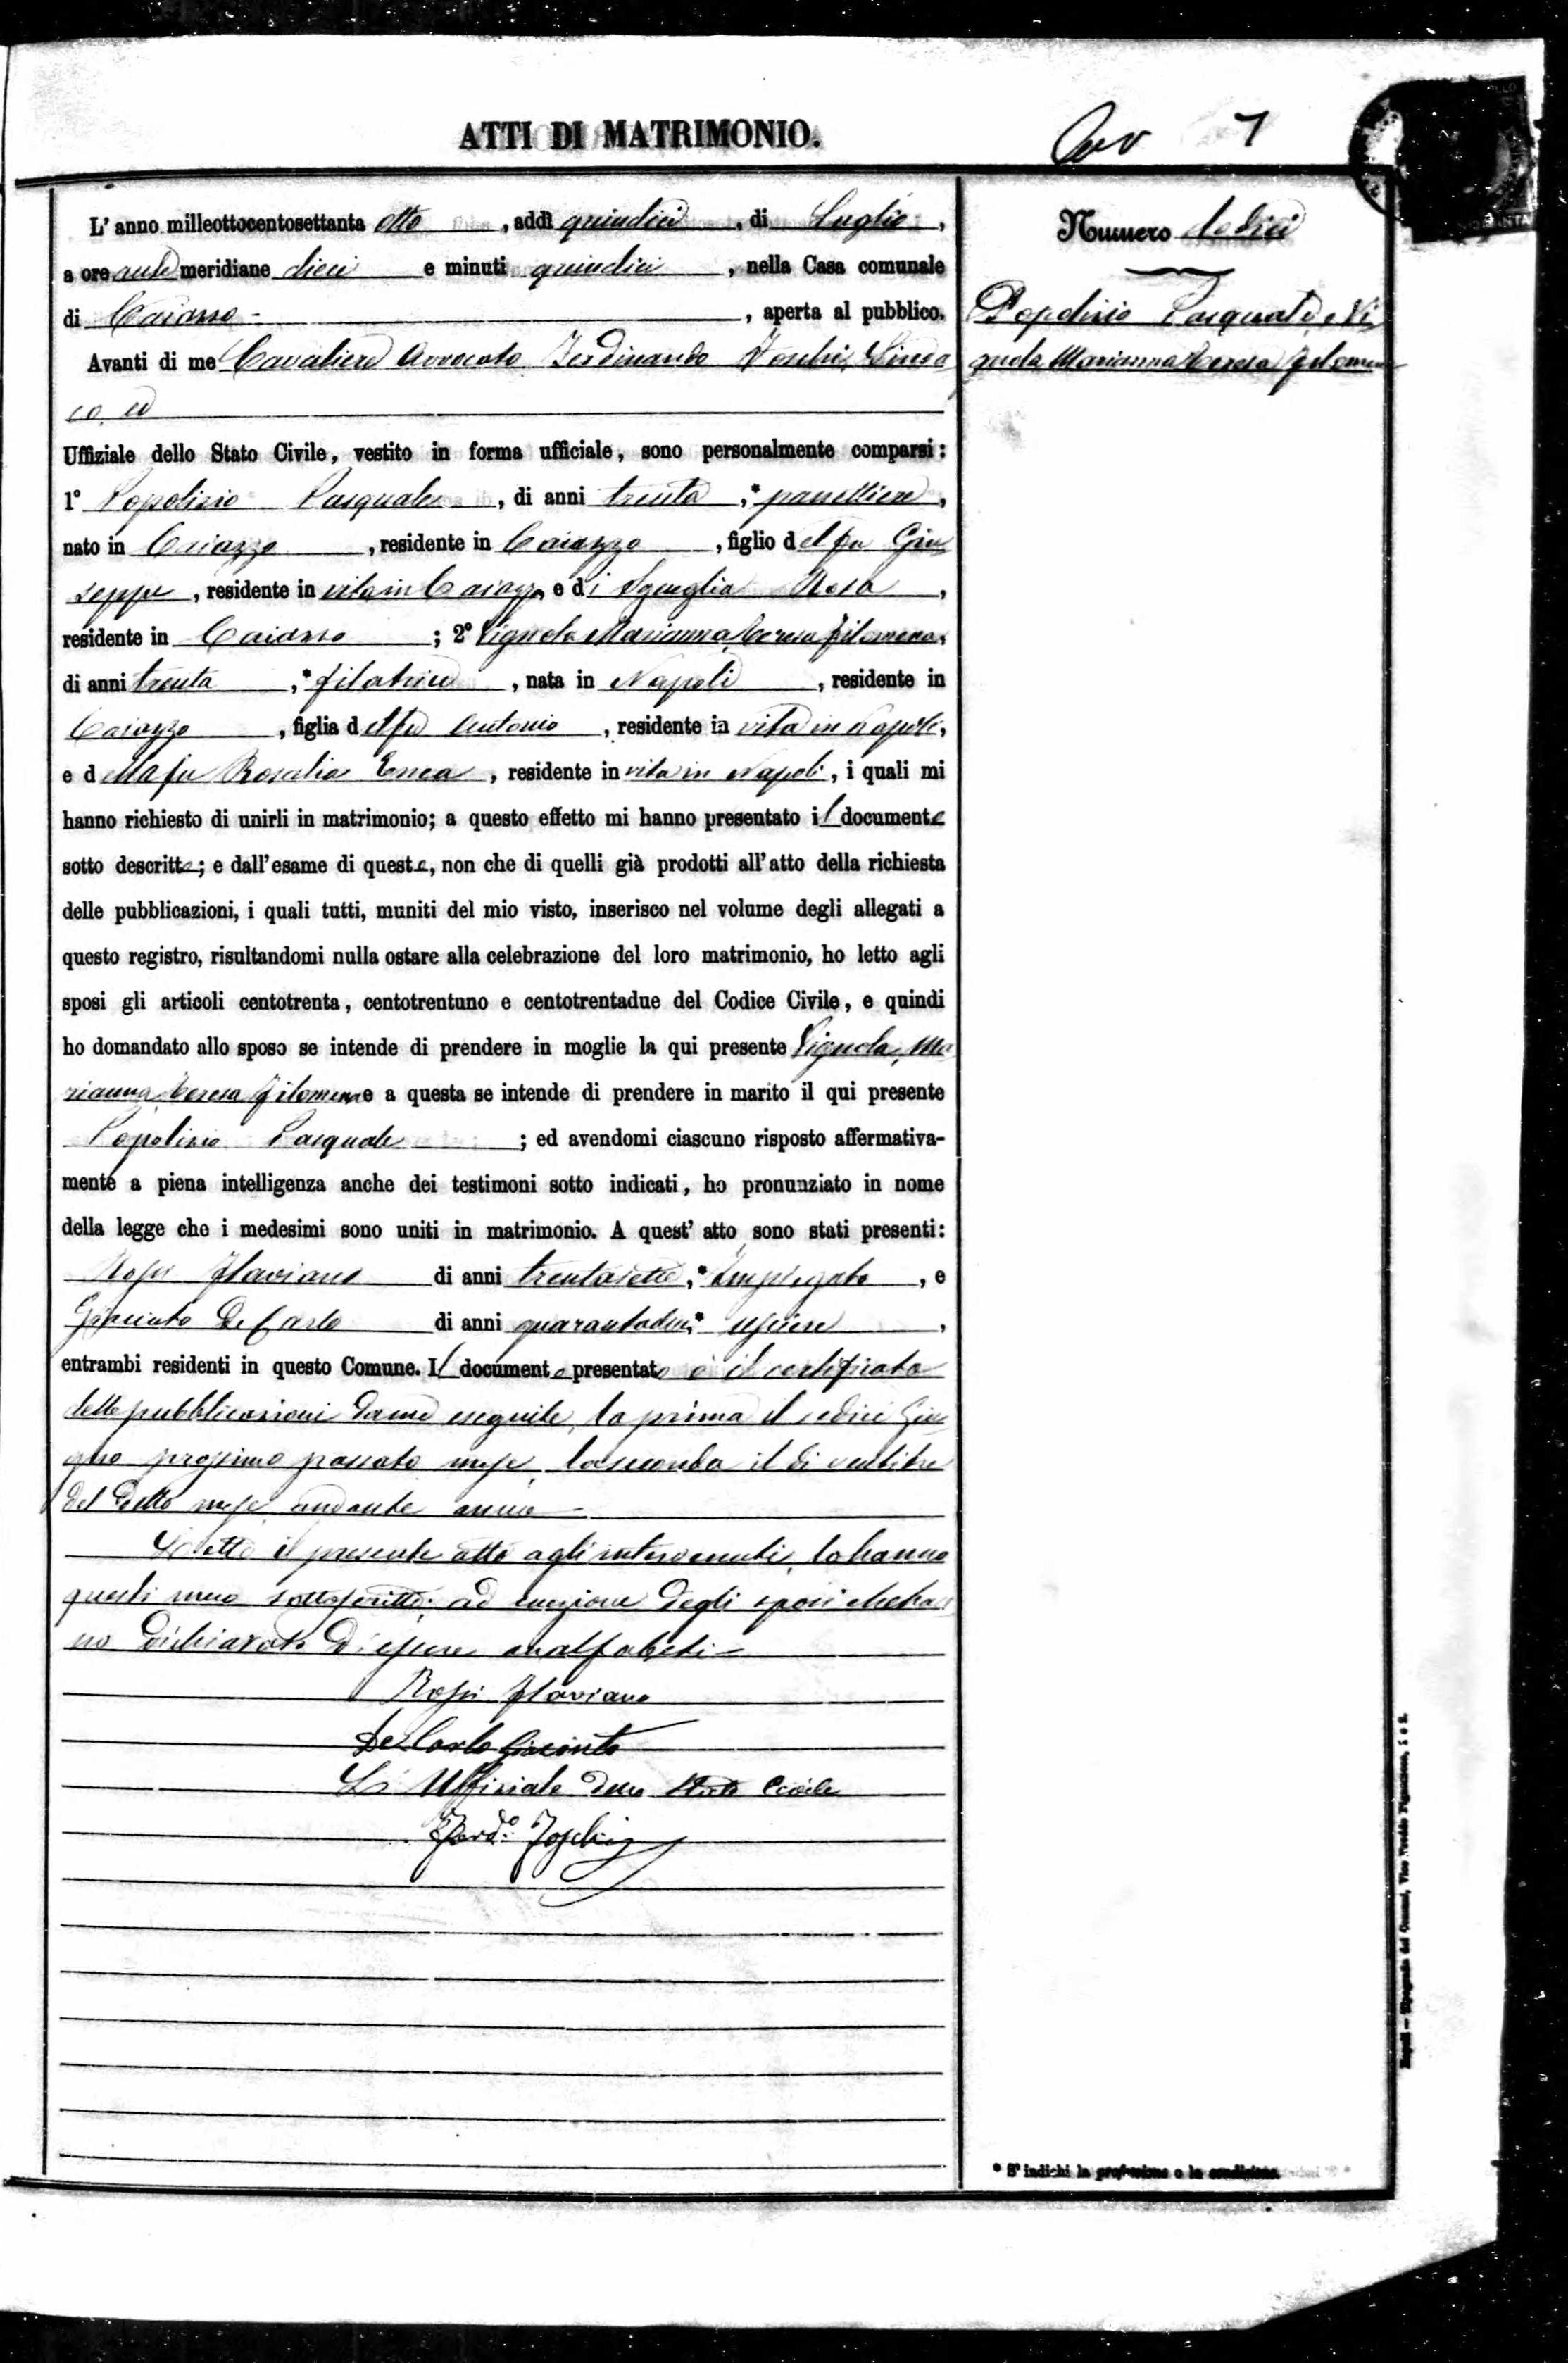 ATTI DI MATRIMONIO.
7
L'anno milleottocentosettanta otto, addì quindici, di Luglio,
a ore anti meridiane dieci e minuti quindici, nella Casa comunale
di Caiazzo, aperta al pubblico.
Avanti di me Cavaliere Avvocato Ferdinando Foschi, Sinda
co, ed
Uffiziale dello Stato Civile, vestito in forma ufficiale, sono personalmente comparsi:
1° Popolizio Pasquale, di anni trenta,* panettiere,
nato in Caiazzo, residente in Caiazzo, figlio del fu Giu
seppe, residente in vita in Caiazzo e di Sgueglia Rosa,
residente in Caiazzo; 2° Vignola Marianna Teresa Filomena,
di anni trenta,* filatrice, nata in Napoli, residente in
Caiazzo, figlia del fu Antonio, residente in vita in Napoli,
e della fu Rosalia, residente in vita in Napoli, i quali mi
hanno richiesto di unirli in matrimonio; a questo effetto mi hanno presentato il documento
sotto descritto; e dall'esame di questo, non che di quelli già prodotti all'atto della richiesta
delle pubblicazioni, i quali tutti, muniti del mio visto, inserisco nel volume degli allegati a
questo registro, risultandomi nulla ostare alla celebrazione del loro matrimonio, ho letto agli
sposi gli articoli centotrenta, centotrentuno e centotrentadue del Codice Civile, e quindi
ho domandato allo sposo se intende di prendere in moglie la qui presente Vignola, Ma
rianna Teresa Filomena e a questa se intende di prendere in marito il qui presente
Popolizio Pasquale; ed avendomi ciascuno risposto affermativa-
mente a piena intelligenza anche dei testimoni sotto indicati, ho pronunziato in nome
della legge che i medesimi sono uniti in matrimonio. A quest'atto sono stati presenti:
Rossi Flaviano di anni trentasette,* Impiegato, e
Giacinto De Carlo di anni quarantadue,* usciere,
entrambi residenti in questo Comune. Il documento presentato è il certificato
delle pubblicazioni da me eseguite, la prima il sedici Giu
gno prossimo passato mese, la seconda il dì ventitre
del detto mese andante anno
Letto il presente atto agli intervenuti, lo hanno
questi meco sottoscritto, ad eccezione degli sposi che han
no dichiarato di essere analfabeti
Rossi Flaviano
De Carlo Giacinto
L'Uffiziale dello Stato Civile
Ferd.° Foschi
Numero sedici
Popolizio Pasquale, e Vi
gnola Marianna Teresa Filomena
* S'indichi la professione o la condizione.